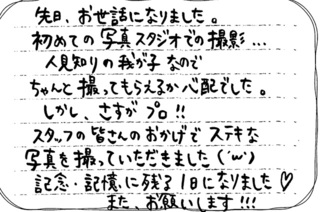 先日、お世話になりました。
初めての写真スタジオでの撮影...
人見知りの我が子なので
ちゃんと撮ってもらえるか心配でした。
しかし、さすがプロ!!
スタッフの皆さんのおかげでステキな
写真を撮っていただきました(´ω`)
記念・記憶に残る1日になりました♡
また、お願いします!!!